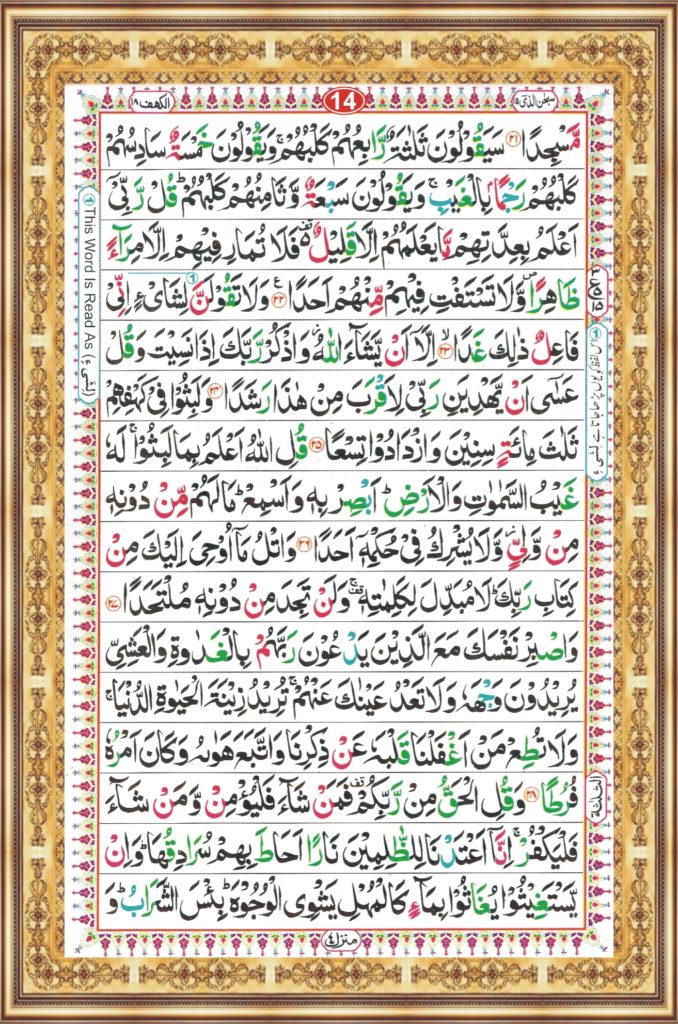 سبحن الذی ۱۵
14
الكهف ۱۸
مَّسْجِدًا ۝۲۱ سَيَقُوْلُوْنَ ثَلٰثَةٌ رَّابِعُهُمْ كَلْبُهُمْ ۚ وَيَقُوْلُوْنَ خَمْسَةٌ سَادِسُهُمْ
كَلْبُهُمْ رَجْمًۢا بِالْغَيْبِ ۚ وَيَقُوْلُوْنَ سَبْعَةٌ وَّثَامِنُهُمْ كَلْبُهُمْ ؕ قُلْ رَّبِّيْۤ
اَعْلَمُ بِعِدَّتِهِمْ مَّا يَعْلَمُهُمْ اِلَّا قَلِيْلٌ ۬۫ فَلَا تُمَارِ فِيْهِمْ اِلَّا مِرَآءً
ظَاهِرًا ۪ وَّلَا تَسْتَفْتِ فِيْهِمْ مِّنْهُمْ اَحَدًا ۝۲۲ وَلَا تَقُوْلَنَّ لِشَایْءٍ اِنِّيْ
فَاعِلٌ ذٰلِكَ غَدًا ۝۲۳ اِلَّاۤ اَنْ يَّشَآءَ اللّٰهُ ؗ وَاذْكُرْ رَّبَّكَ اِذَا نَسِيْتَ وَقُلْ
عَسٰۤى اَنْ يَّهْدِيَنِ رَبِّيْ لِاَقْرَبَ مِنْ هٰذَا رَشَدًا ۝۲۴ وَلَبِثُوْا فِيْ كَهْفِهِمْ
ثَلٰثَ مِائَةٍ سِنِيْنَ وَازْدَادُوْا تِسْعًا ۝۲۵ قُلِ اللّٰهُ اَعْلَمُ بِمَا لَبِثُوْا ۚ لَهٗ
غَيْبُ السَّمٰوٰتِ وَالْاَرْضِ ؕ اَبْصِرْ بِهٖ وَاَسْمِعْ ؕ مَا لَهُمْ مِّنْ دُوْنِهٖ
مِنْ وَّلِيٍّ ؗ وَّلَا يُشْرِكُ فِيْ حُكْمِهٖۤ اَحَدًا ۝۲۶ وَاتْلُ مَاۤ اُوْحِيَ اِلَيْكَ مِنْ
كِتَابِ رَبِّكَ ؕ لَا مُبَدِّلَ لِكَلِمٰتِهٖ ۚ۫ وَلَنْ تَجِدَ مِنْ دُوْنِهٖ مُلْتَحَدًا ۝۲۷
وَاصْبِرْ نَفْسَكَ مَعَ الَّذِيْنَ يَدْعُوْنَ رَبَّهُمْ بِالْغَدٰوةِ وَالْعَشِيِّ
يُرِيْدُوْنَ وَجْهَهٗ وَلَا تَعْدُ عَيْنٰكَ عَنْهُمْ ۚ تُرِيْدُ زِيْنَةَ الْحَيٰوةِ الدُّنْيَا ۚ
وَلَا تُطِعْ مَنْ اَغْفَلْنَا قَلْبَهٗ عَنْ ذِكْرِنَا وَاتَّبَعَ هَوٰىهُ وَكَانَ اَمْرُهٗ
فُرُطًا ۝۲۸ وَقُلِ الْحَقُّ مِنْ رَّبِّكُمْ ۫ فَمَنْ شَآءَ فَلْيُؤْمِنْ وَّمَنْ شَآءَ
فَلْيَكْفُرْ ۙ اِنَّاۤ اَعْتَدْنَا لِلظّٰلِمِيْنَ نَارًا ۙ اَحَاطَ بِهِمْ سُرَادِقُهَا ؕ وَاِنْ
يَّسْتَغِيْثُوْا يُغَاثُوْا بِمَآءٍ كَالْمُهْلِ يَشْوِی الْوُجُوْهَ ؕ بِئْسَ الشَّرَابُ ؕ وَ
① This Word Is Read As (لِشَیْءٍ)
① اس لفظ کو یوں پڑھا جاتا ہے لِشَیْءٍ
الثلثة
منزل ۴